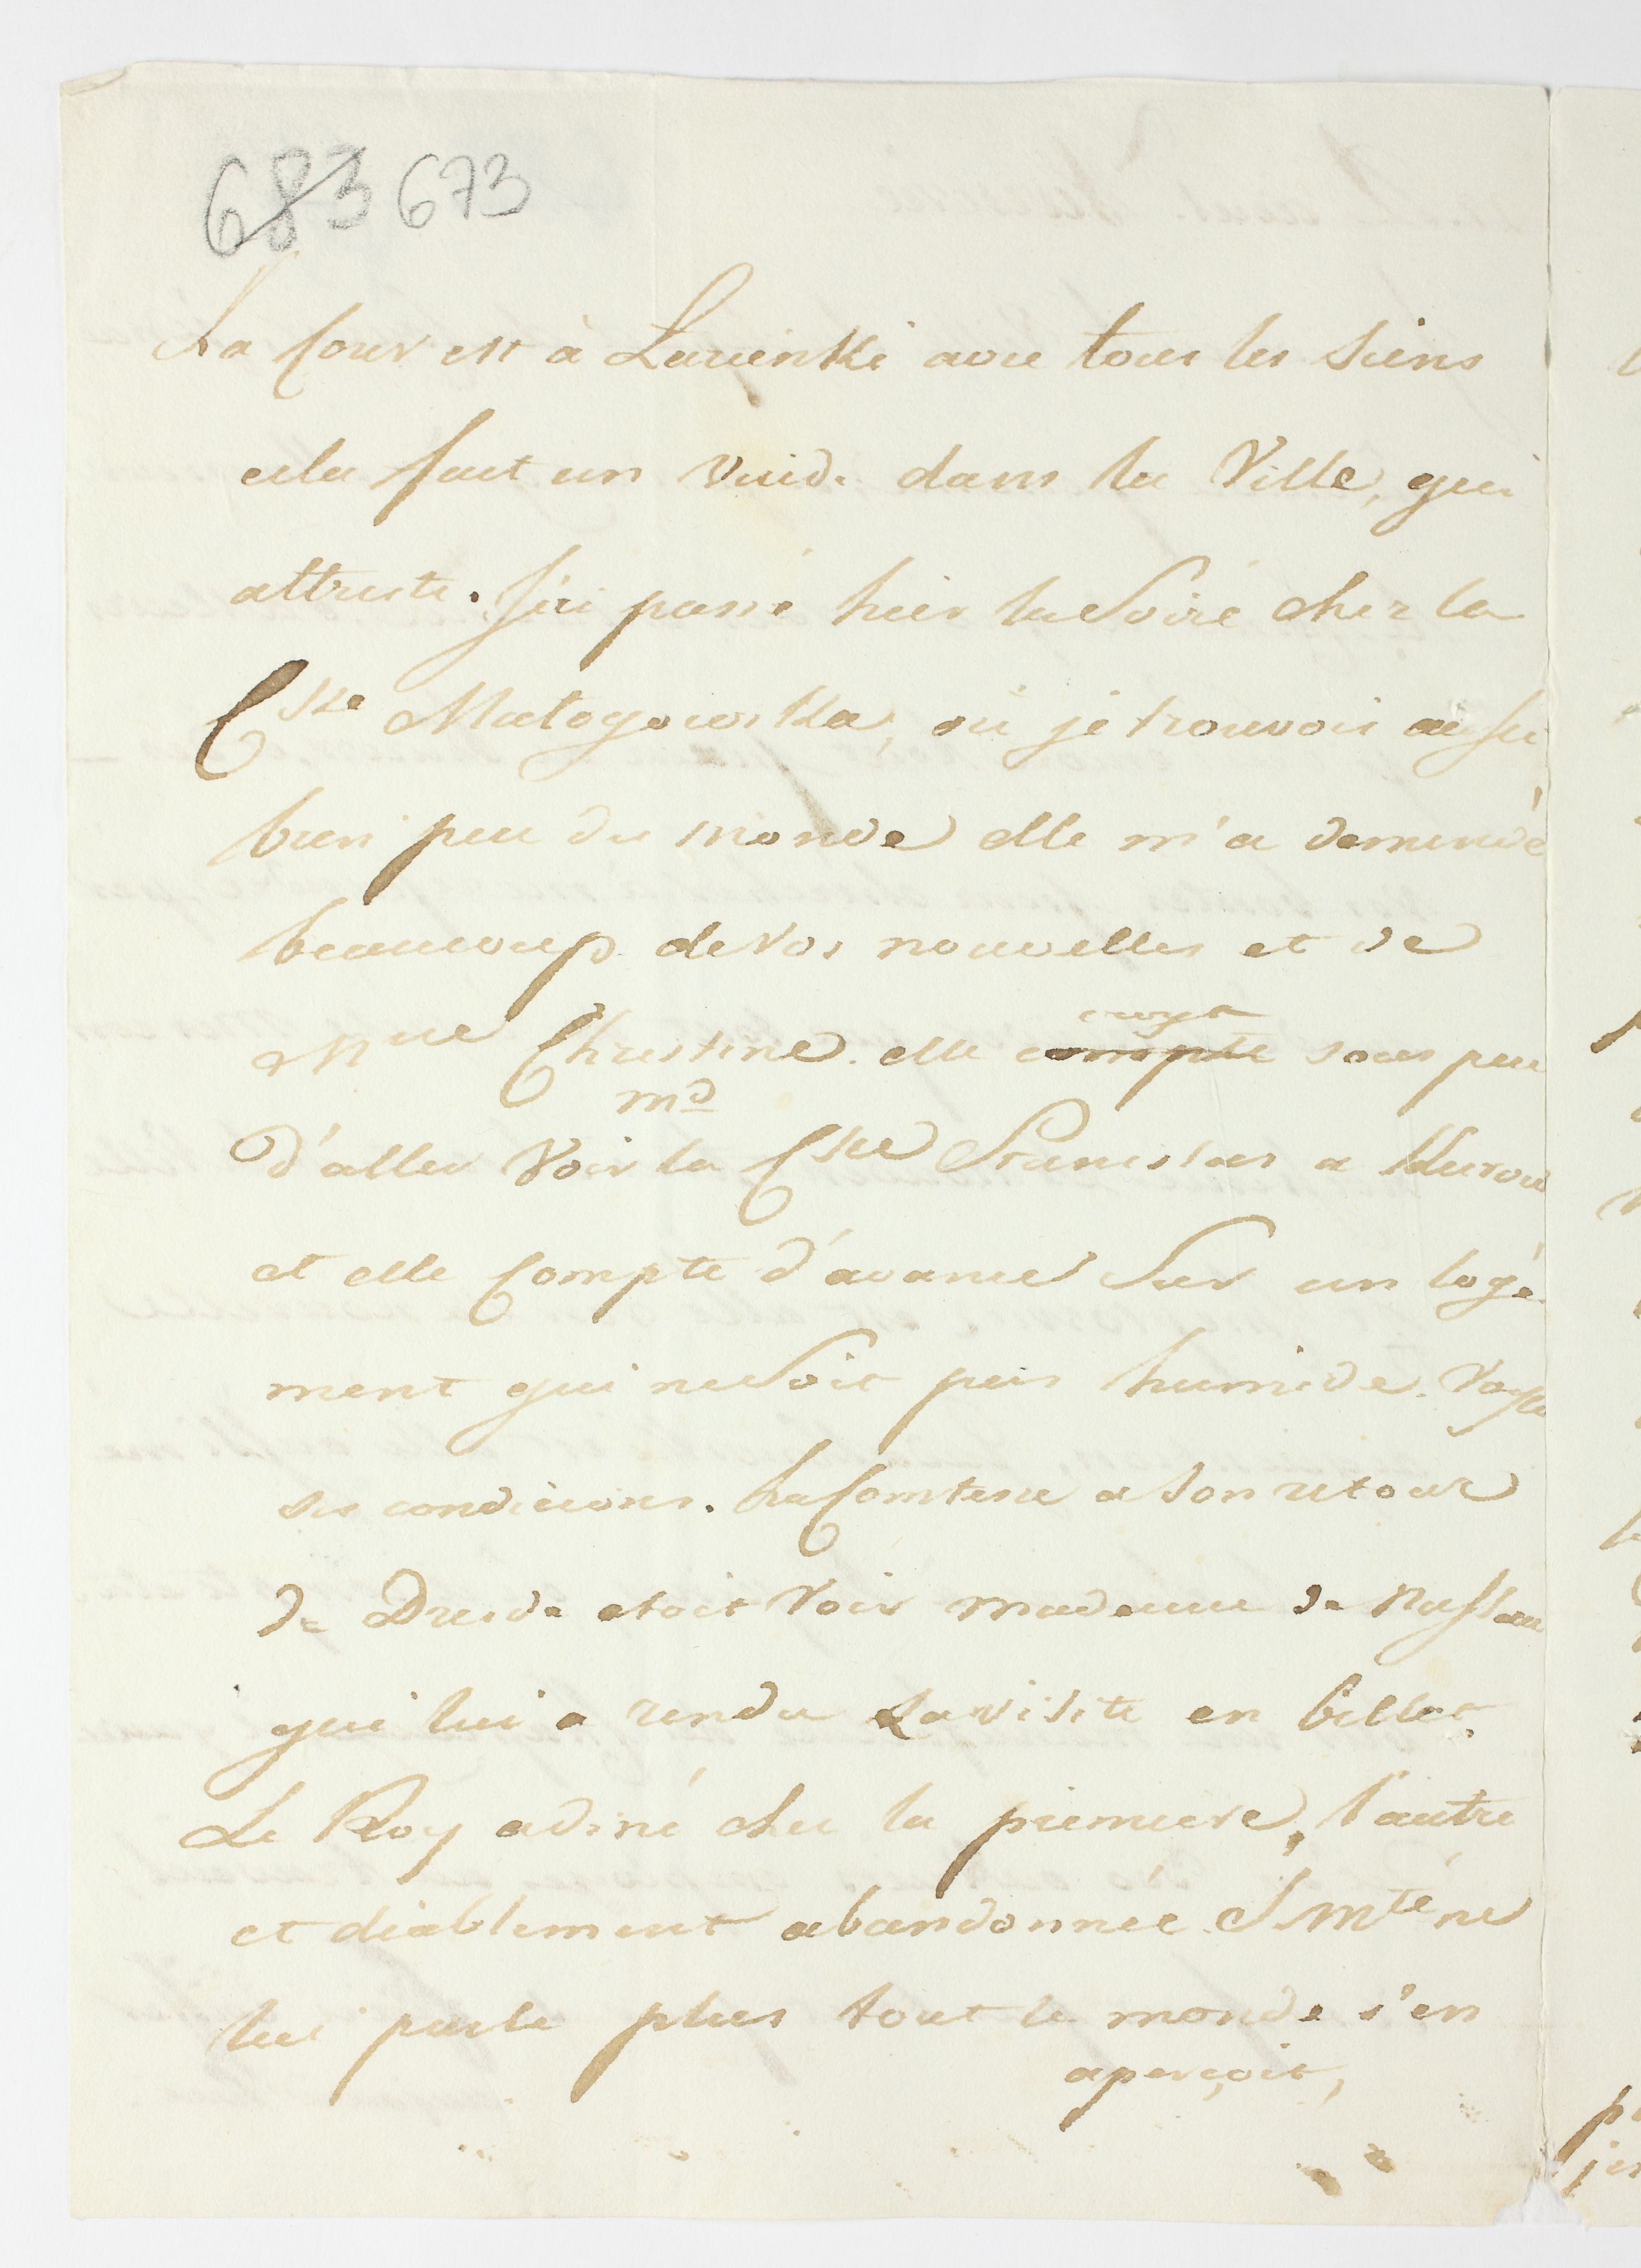 683 673
La Cour est à Lazienki avec tous les Siens
cela fait un vuide dans la Ville, qui
attriste. J'ai passé hier la Soiré chez la
Csse Małogowska, où je trouvois aussi
bien peu du monde elle m'a demandé
beaucoup de vos nouvelles et de
Mlle Christine. elle compte croyt sous peu
d'aller Voir la Csse md Stanislas a Kurow
et elle Compte d'avance Sur un loge
ment qui ne Soit pas humide. Voyla
ses condicions. La Comtesse a son retour
de Dresde etoit Voir madame de Nassau
qui lui a rendu La visite en billet.
Le Roy a diné chez la premiere, l'autre
et diablement abandonnée. S. Mté ne
lui parle plus tout le monde s'en
aperçoit,